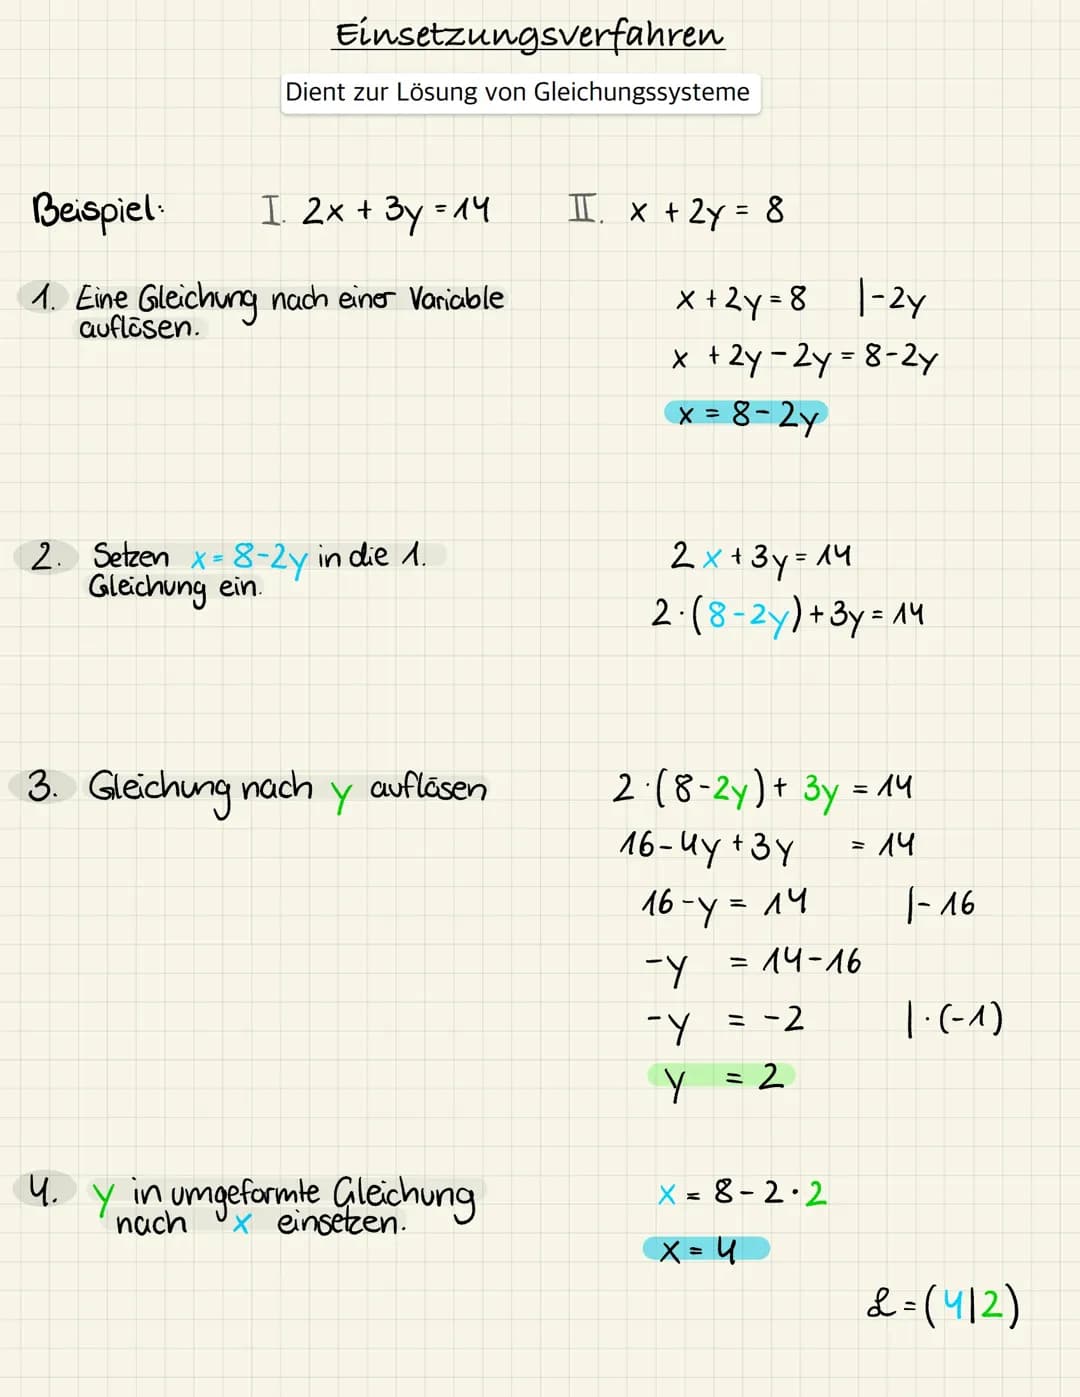 Einsetzungsverfahren
Dient zur Lösung von Gleichungssysteme
Beispiel: I. 2x + 3y = 14 II. x + 2y = 8
1. Eine Gleichung nach einer Variable
auflösen.
x + 2y = 8 |-2y
x + 2y - 2y = 8 - 2y
x = 8 - 2y
2. Setzen x = 8-2y in die 1.
Gleichung ein.
2x + 3y = 14
2·(8-2y) + 3y = 14
3. Gleichung nach y auflösen
2·(8-2y) + 3y = 14
16 - 4y + 3y = 14
16 - y = 14 |-16
-y = 14 - 16
-y = -2 |·(-1)
y = 2
4. y in umgeformte Gleichung
nach x einsetzen.
x = 8 - 2·2
x = 4
ℒ = (4|2)